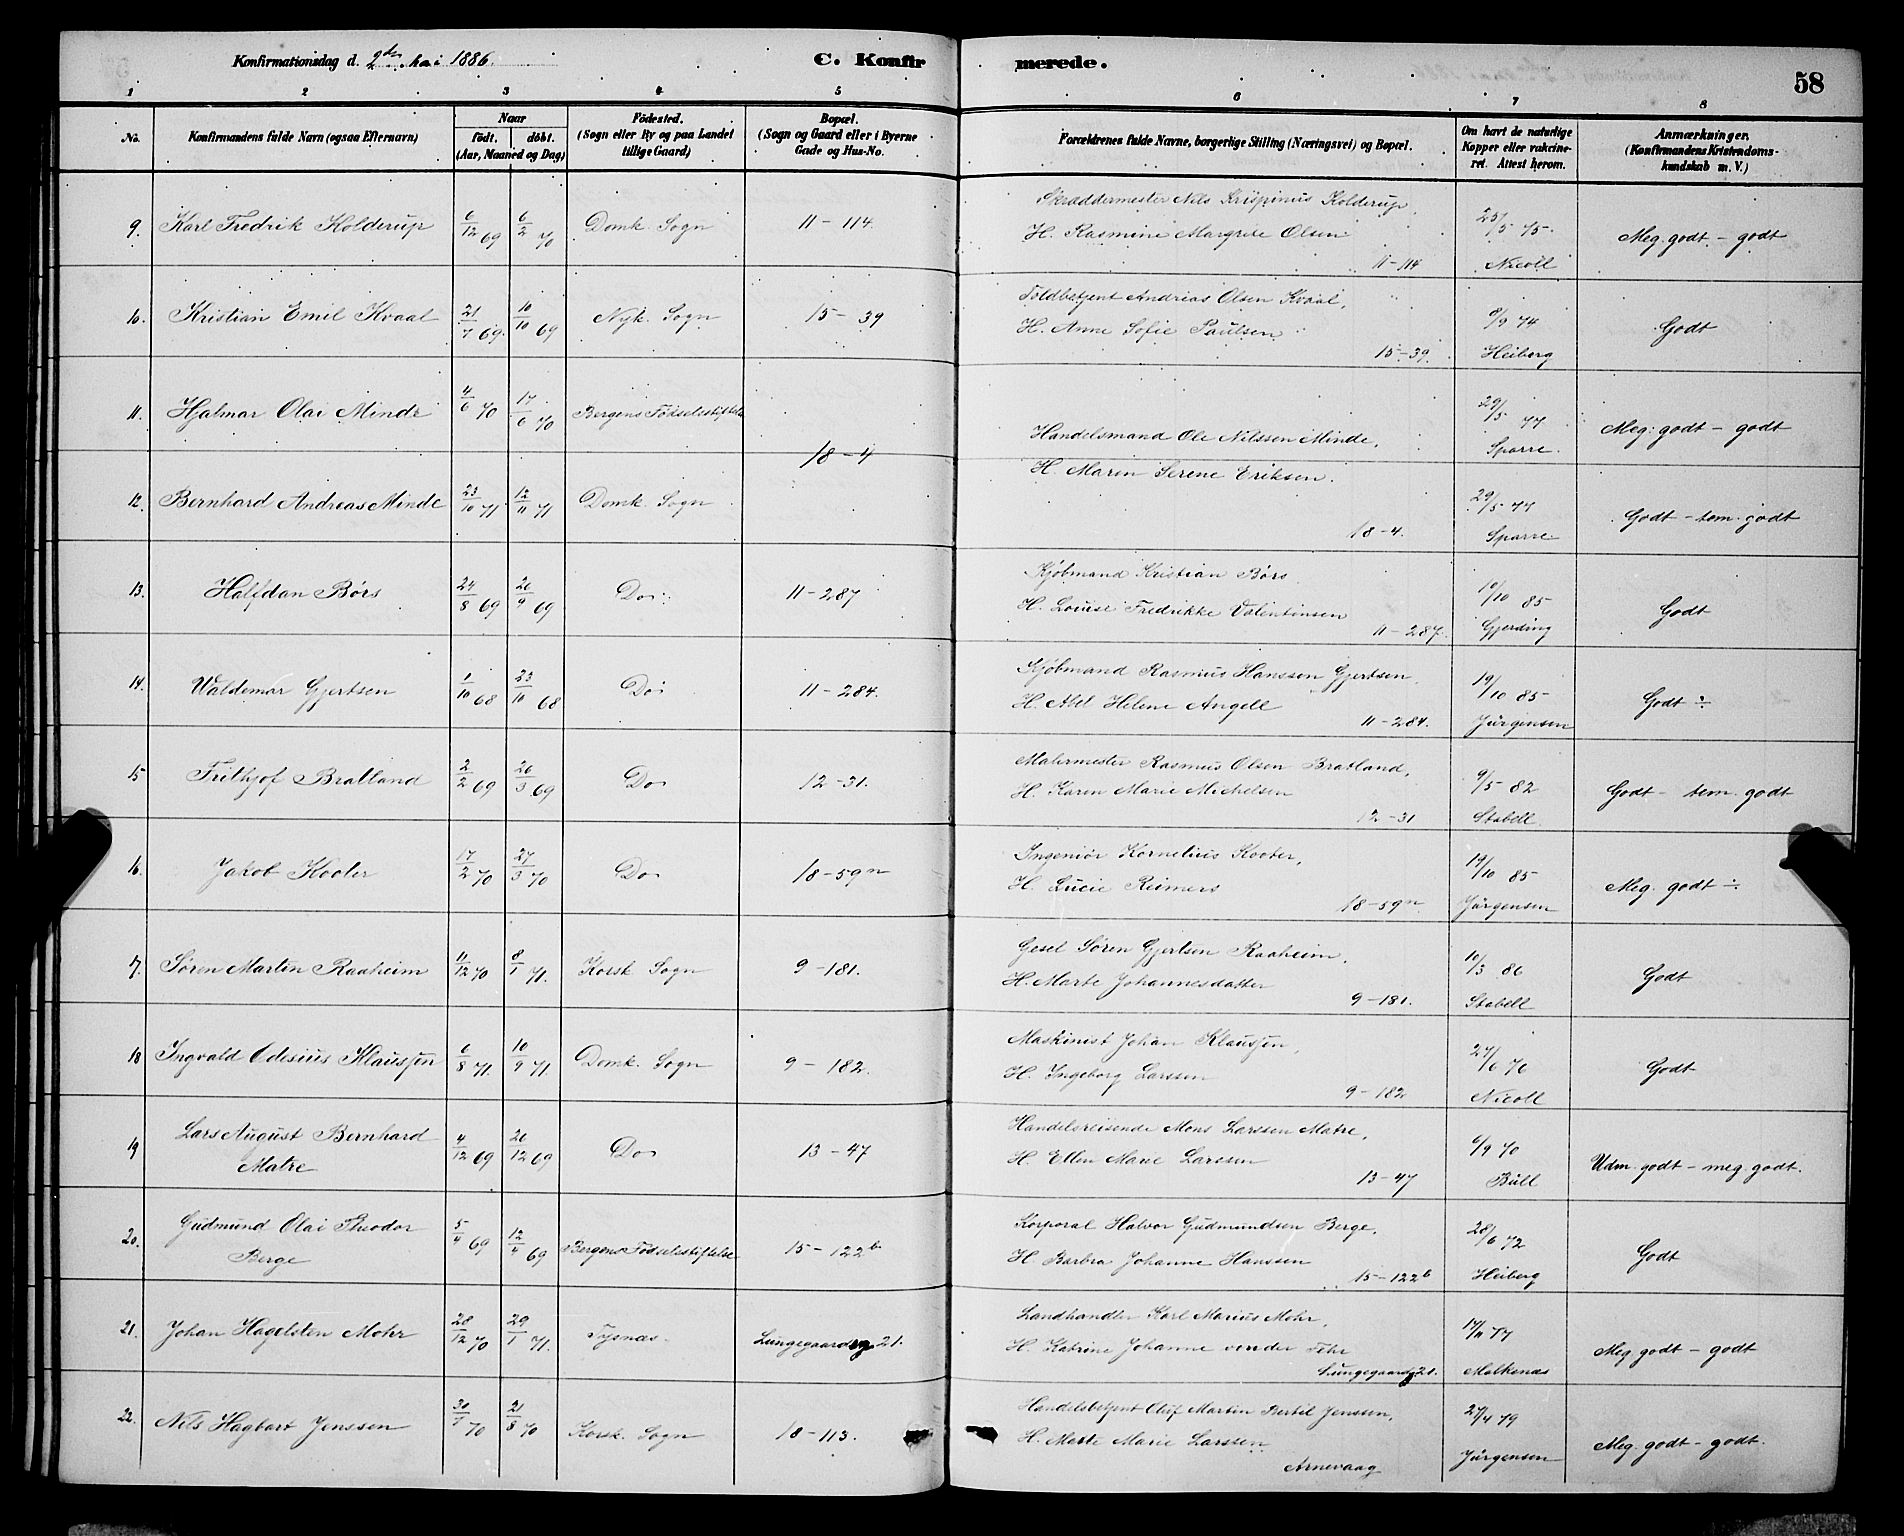 Konfirmationsdag d. 2den Mai 1886. C. Konfirmerede. 58
1 2 3 4 5 6 7 8
No. Konfirmandens fulde Navn (ogsaa Efternavn) Naar födt. döbt. (Aar, Maaned og Dag) Födested. (Sogn eller By og paa Landet tillige Gaard) Bopæl. (Sogn og Gaard eller i Byerne Gade og Hus-No. Forældrenes fulde Navne, borgerlige Stilling (Næringsvei) og Bopæl. Om havt de naturlige Kopper eller vakcineret. Attest herom. Anmærkninger. (Konfirmandens Kristendomskundskab m. V.)
9. Karl Fredrik Kolderup 6/12 69 6/2 70 Domk. Sogn 11-114. Skræddermester Nils Krispinus Kolderup, 25/5 75.
H. Rasmine Margrete Olsen Meg. godt - godt
11-114 Nicoll
10. Kristian Emil Kvaal 21/7 69. 10/10 69 Nyk. Sogn 15-39 Toldbetjent Andreas Olsen Kvaal, 8/9 74 Godt
H. Anne Sofie Paulsen
15-39. Heiberg
11. Hjalmar Olai Minde 4/6 70 17/6 70 Bergens Födselsstiftelse 29/5 77 Meg. godt - godt
18-4 Handelsmand Ole Nilssen Minde, Sparre.
H. Maren Serene Eriksen.
12. Bernhard Andreas Minde 23/10 71. 12/11 71 Domk. Sogn 29/5 77 Godt - tem. godt
18-4. Sparre.
13. Halfdan Börs 24/8 69 26/9 69 Do 11-287 Kjöbmand Kristian Börs. 19/10 85 Godt
H. Louise Fredrikke Valentinsen
11-287. Gjerding
14. Waldemar Gjertsen 1/10 68 23/10 68 Do 11-284. Kjöbmand Rasmus Hansson Gjertsen, 19/10 85 Godt ÷
H. Abel Helene Angell
11-284. Jürgensen
15 Frithjof Bratland 2/2 69 26/3 69 Do 12-31. Malermester Rasmus Olsen Bratland, 9/5 82 Godt - tem. godt
H. Karen Marie Michelsen
12-31 Stabell.
16. Jakob Kooter 17/2 70 27/3 70 Do 18-59n Ingeniör Kornelius Kooter, 19/10 85 Meg. godt ÷
H. Lucie Reimers
18-59n. Jürgensen
17. Sören Martin Raaheim 11/12 70 8/1 71. Korsk. Sogn 9-181. Gesel Sören Gjertsen Raaheim, 10/3 86 Godt
H. Marte Johannesdatter
9-181. Stabell
18 Ingvald Edesius Klausjen 6/8 71. 10/9 71. Domk. Sogn 9-182. Maskinist Johan Klausjen, 27/6 76 Godt
H. Ingeborg Larssen
9-182 Nicoll
19 Lars August Bernhard Matre 4/12 69 26/12 69 Do 13-47 Handelsreisende Mons Larssen Matre, 6/9 70 Udm. godt - meg. godt.
H. Ellen Marie Larssen
13-47 Büll
20. Gudmund Olai Theodor Berge 5/4 69 12/4 69 Bergens Födselsstiftelse 15-122b Korporal Halvor Gudmundsen Berge, 28/6 72 Godt
H. Barbra Johanne Hanssen
15-122b Heiberg
21. Johan Hagelsten Mohr 28/12 70 29/1 71. Tysnæs. Lungegaardsg 21. Landhandler Karl Marius Mohr, 14/11 77 Meg. godt - godt
H. Katrine Johanne von der Fehr
Lungegaardsg 21.
22. Nils Hagbart Jenssen 70 21/8 70 Korsk. Sogn 18-113. Handelsbetjent Oluf Martin Bertil Jenssen, 27/4 79 Meg. godt - godt.
H. Merte Marie Larssen
Arnevaag Jürgensen